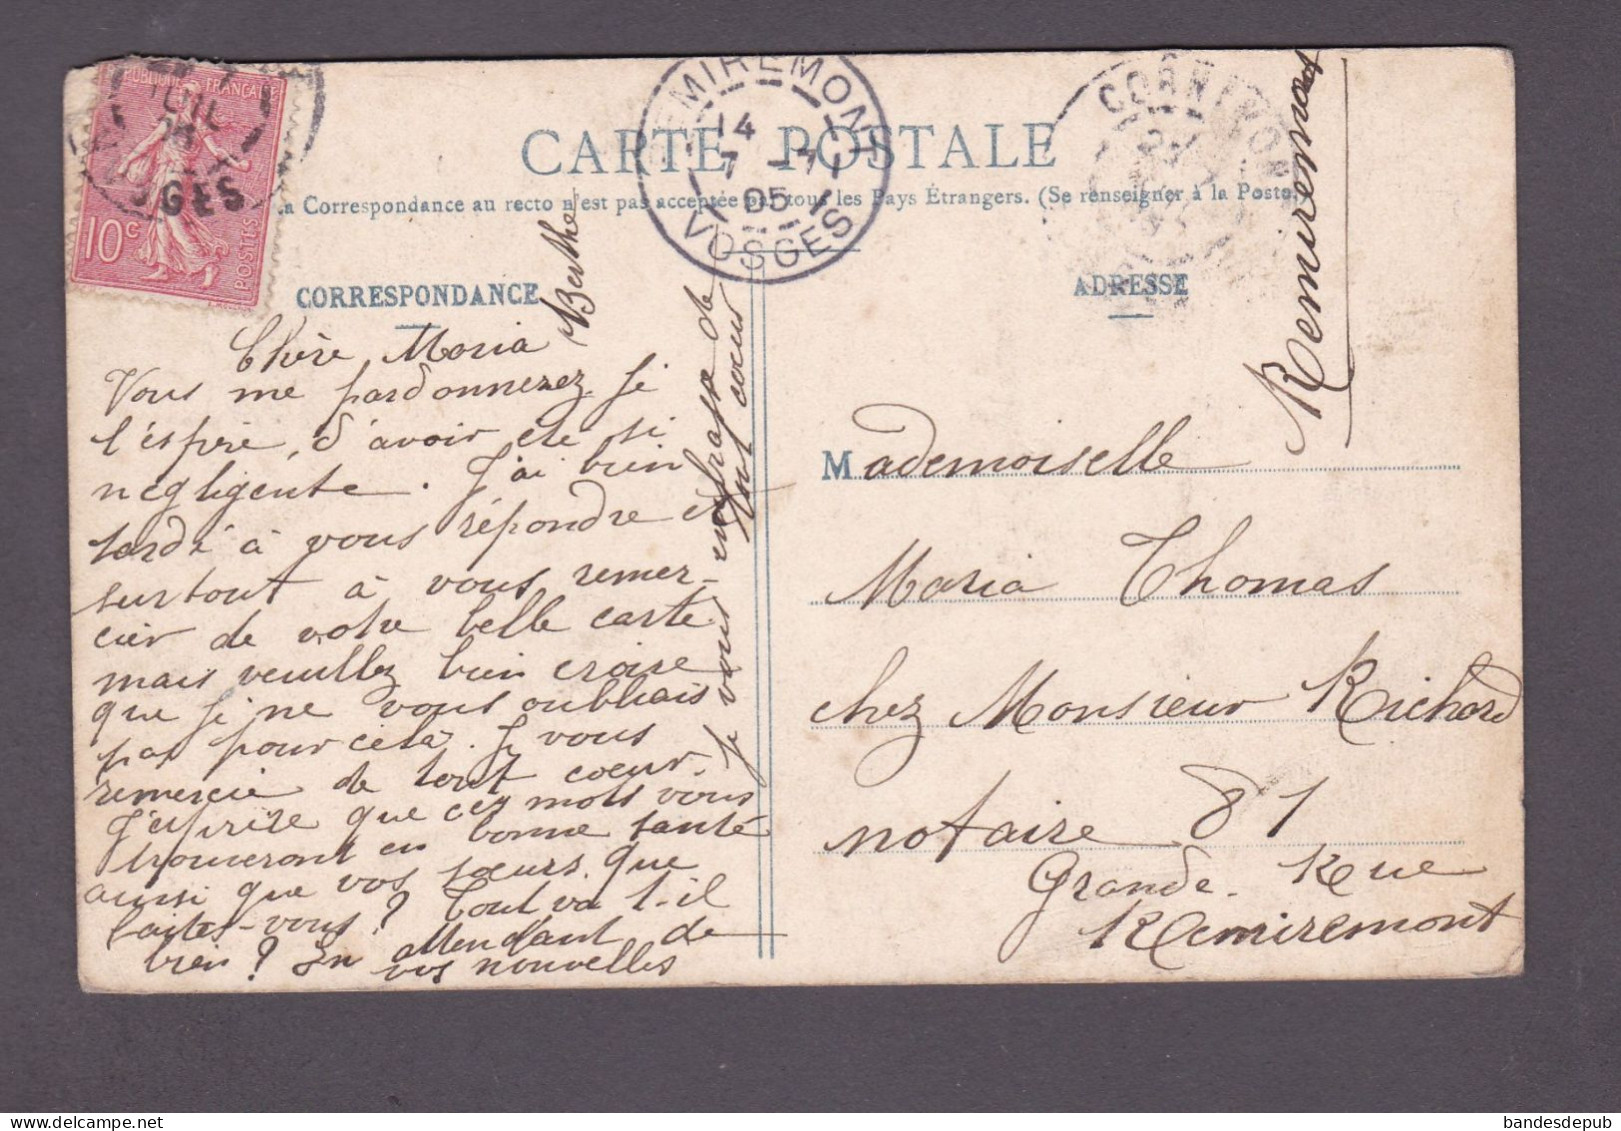 RÉPUBLIQUE FRANÇAISE
10c
POSTES
JUIL
GES
REMIREMONT
14
7 -7
05
VOSGES
CORNIMONT
CARTE POSTALE
La Correspondance au recto n'est pas acceptée par tous les Pays Étrangers. (Se renseigner à la Poste.)
CORRESPONDANCE
ADRESSE
Chère Maria
Vous me pardonnerez je
l'espère, d'avoir été si
négligente. J'ai bien
tardé à vous répondre et
surtout à vous remer-
cier de votre belle carte
mais veuillez bien croire
que je ne vous oubliais
pas pour cela. Je vous
remercie de tout coeur.
J'espère que ces mots vous
trouveront en bonne santé
ainsi que vos soeurs. Que
faites-vous? Tout va t-il
bien? En attendant de
vos nouvelles
je vous embrasse de
tout coeur
Berthe
Mademoiselle
Maria Thomas
chez Monsieur Richard
notaire 81
Grande-Rue
Remiremont
Remiremont
bandesdepub